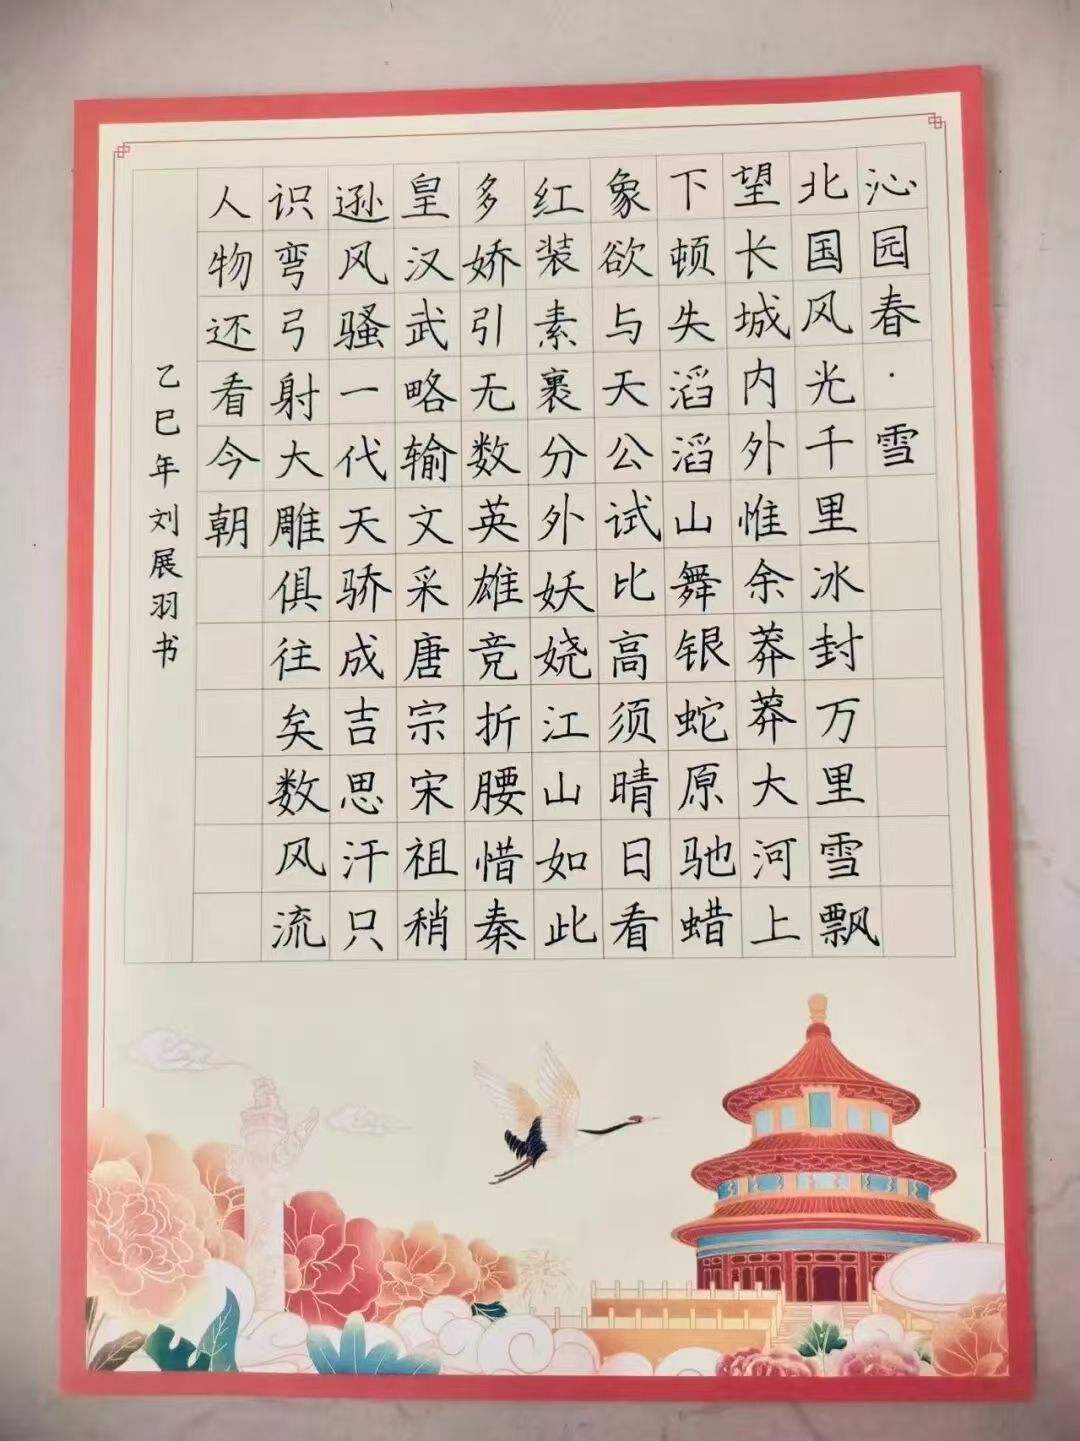 沁园春·雪
北国风光千里冰封万里雪飘
望长城内外惟余莽莽大河上
下顿失滔滔山舞银蛇原驰蜡
象欲与天公试比高须晴日看
红装素裹分外妖娆江山如此
多娇引无数英雄竞折腰惜秦
皇汉武略输文采唐宗宋祖稍
逊风骚一代天骄成吉思汗只
识弯弓射大雕俱往矣数风流
人物还看今朝
乙巳年刘展羽书